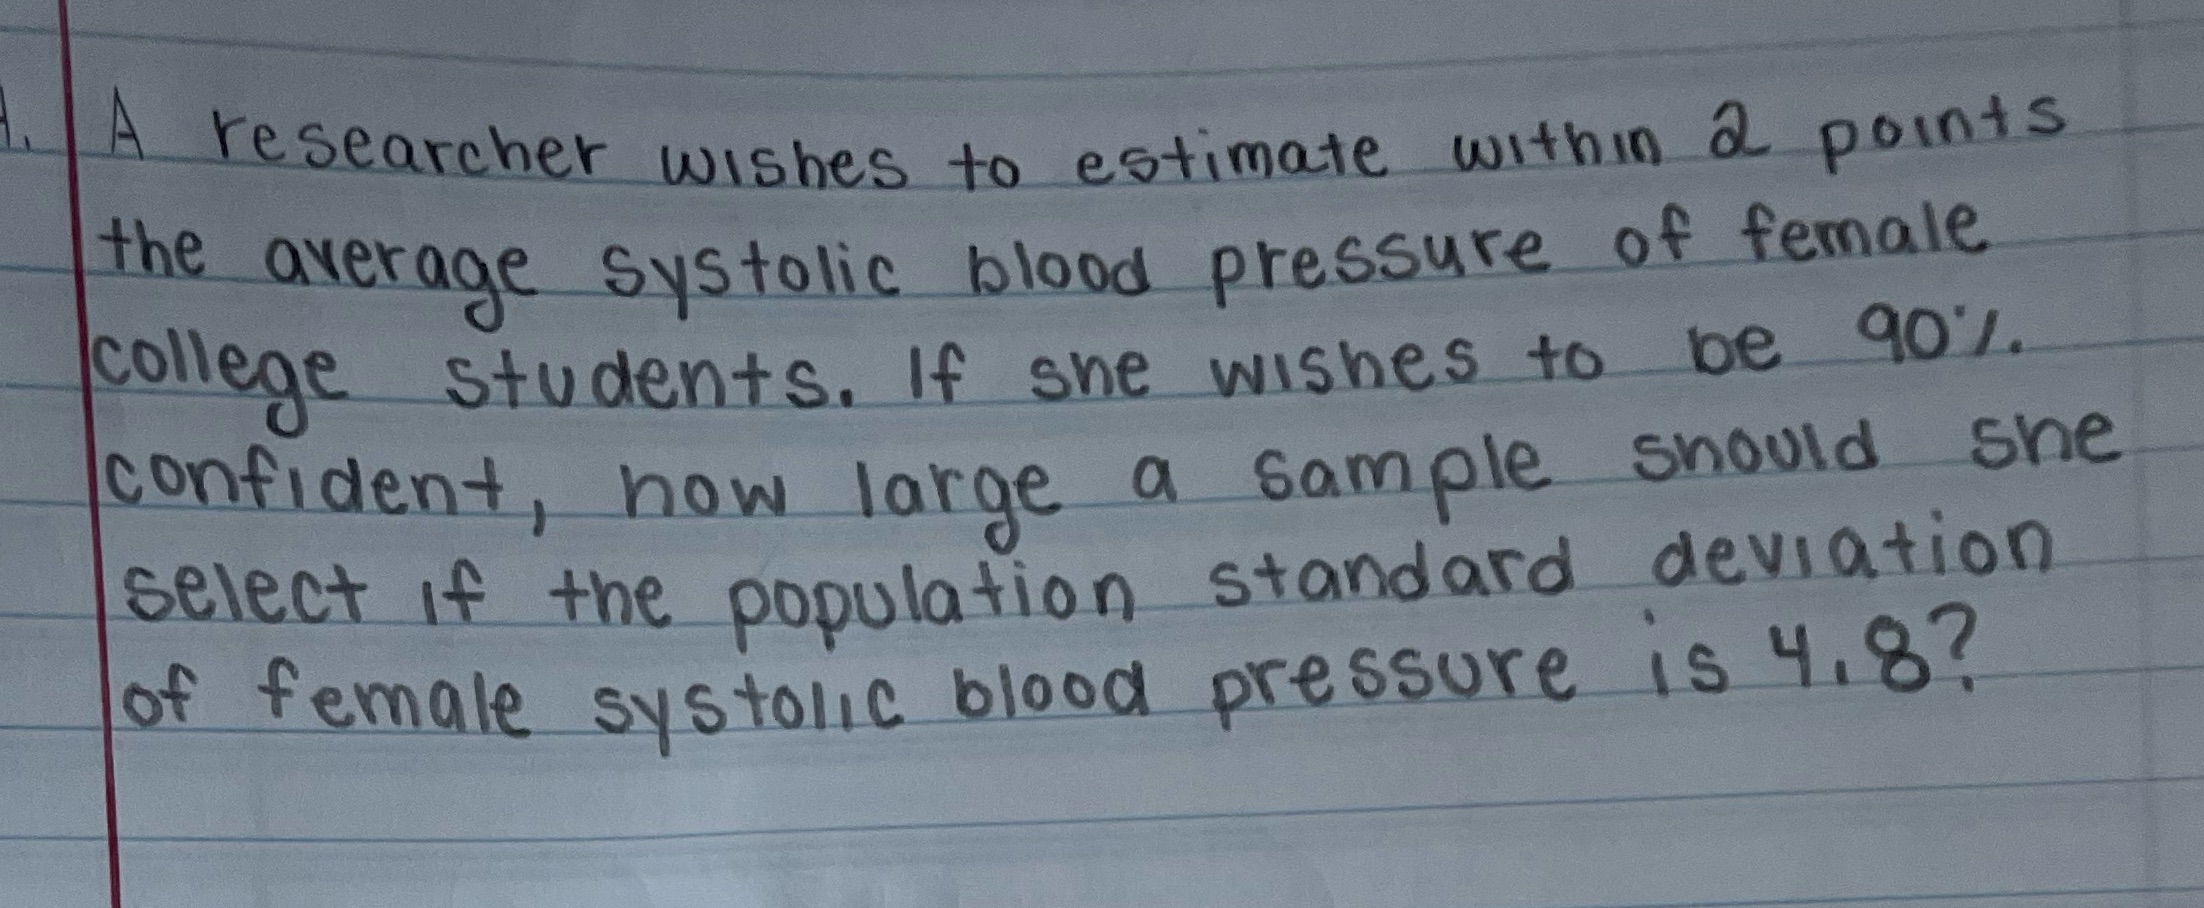 A researcher wishes to estimate within 2 points
the average systolic blood pressure of female
college students. If she wishes to be 90%
confident, how large a sample should she
select if the population standard deviation
of female systolic blood pressure is 4.8?